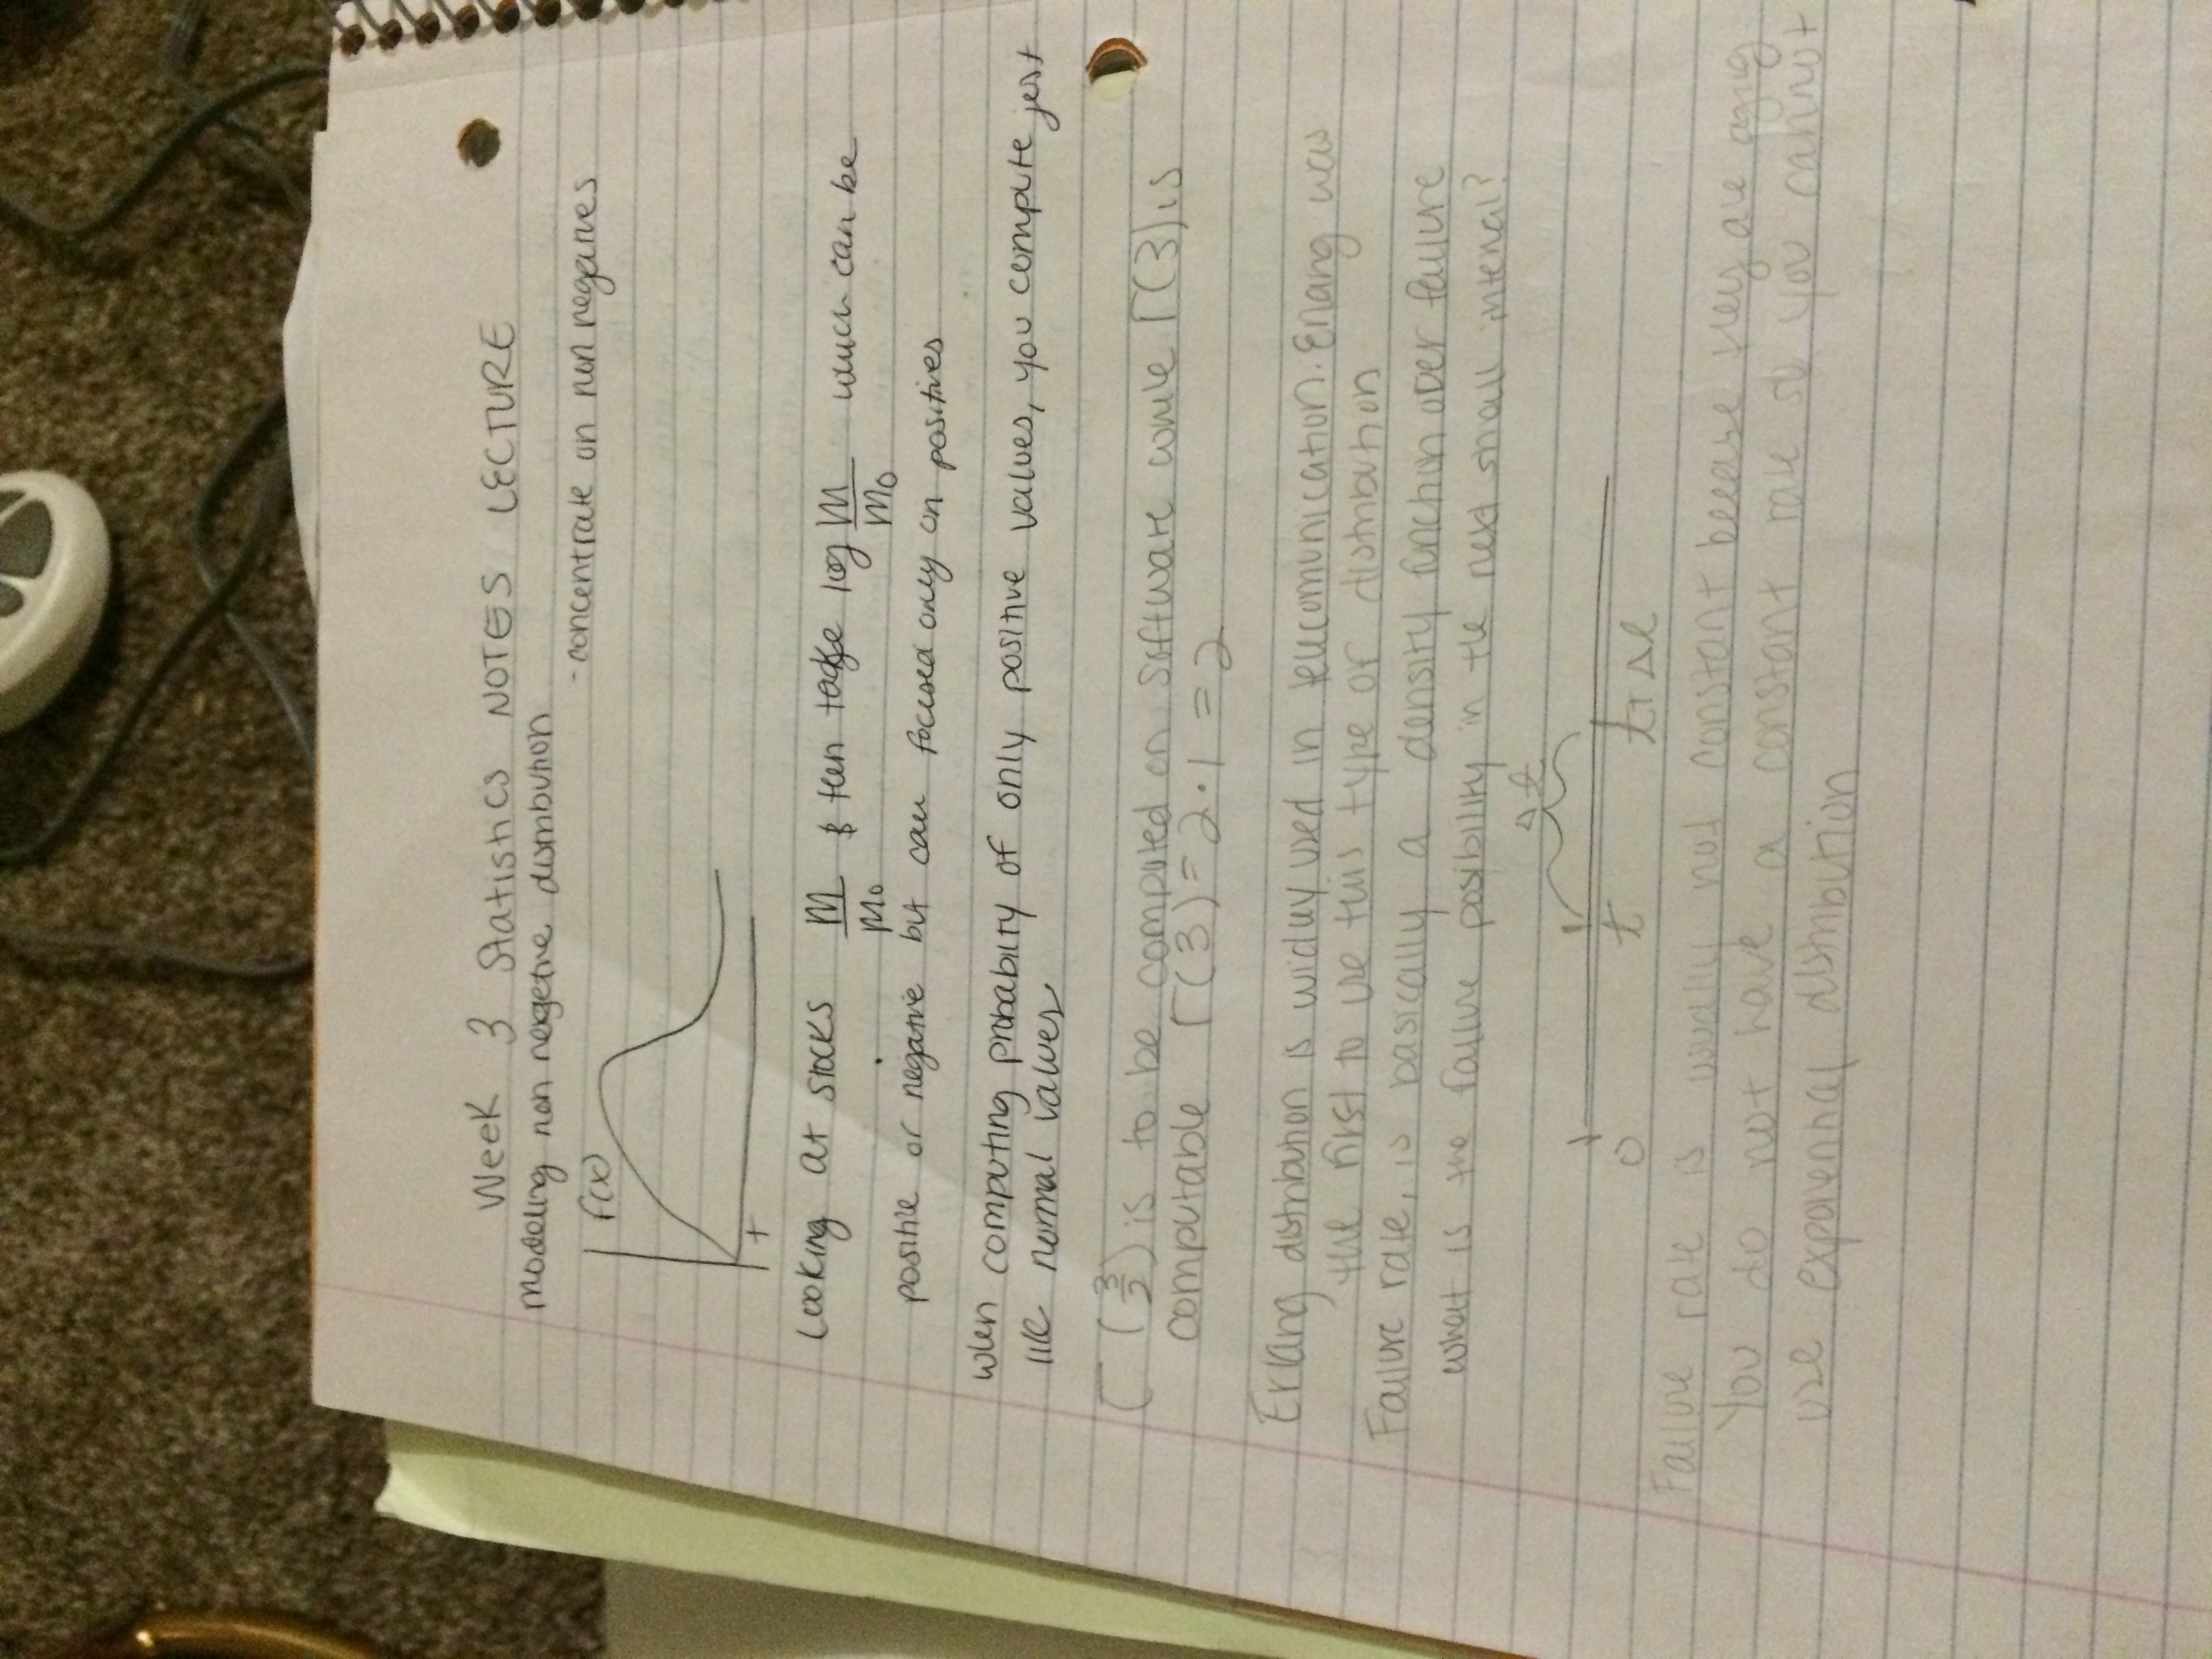 Week 3 Statistics NOTES LECTURE
modeling non negetive distribution
- concentrate on non negatives
f(x)
+
Looking at stocks M/M₀ & then take log M/M₀ which can be
positive or negative but can focused only on positives
when computing probability of only positive values, you compute jest
like normal values
Γ(3/2) is to be computed on software while Γ(3) is
computable Γ(3) = 2·1 = 2
Erlang distribution is widley used in telecomunication. Erlang was
the first to use this type of distribution
Failure rate, is basically a density function over failure
what is the failure posibility in the next small interval?
Δt
0 t t+Δt
Failure rate is usually not constant becase they are aging
You do not have a constant rate so you cannot
use exponenhal distribution